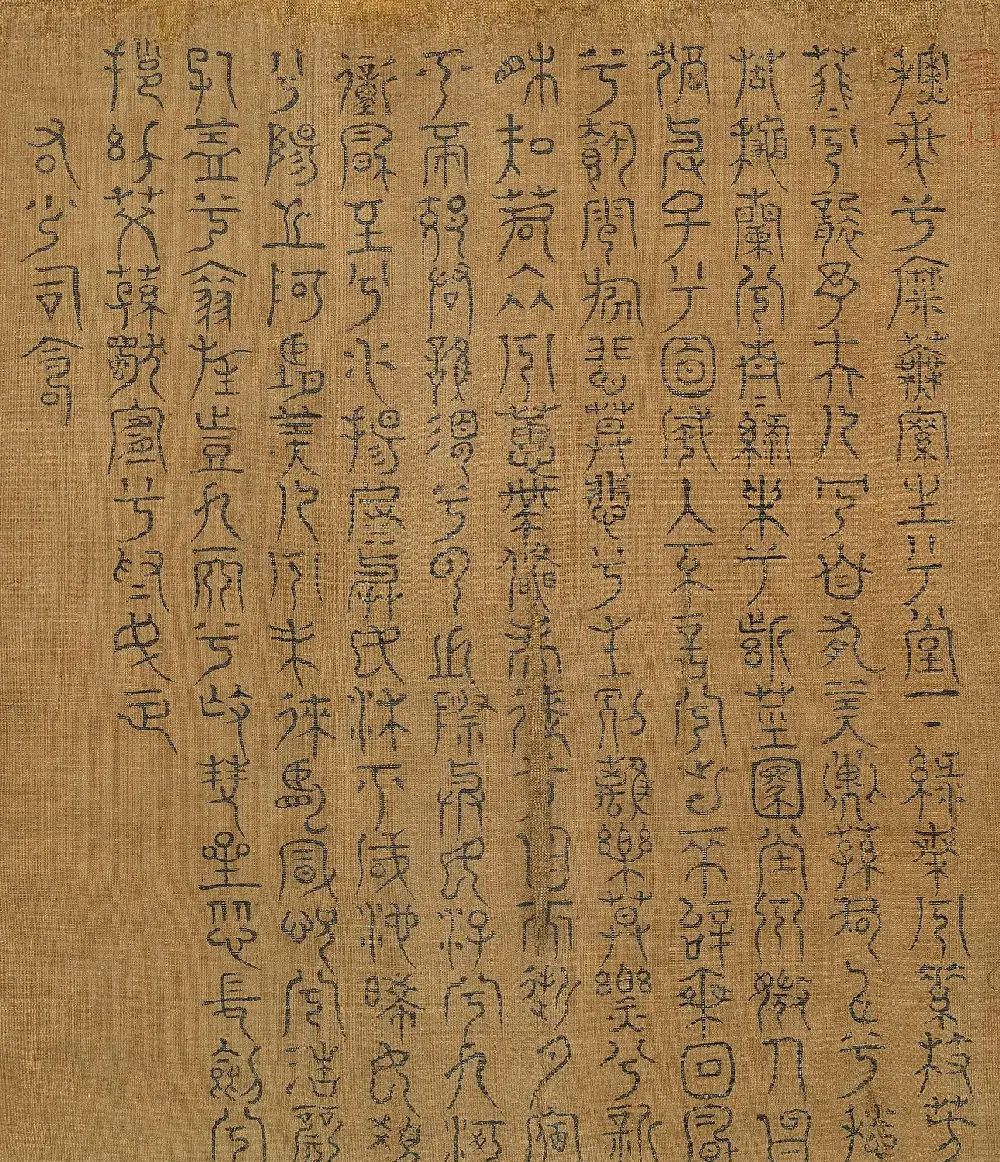 秋蘭兮麋蕪羅生兮堂下綠葉兮素枝芳
菲菲兮襲予夫人兮自有美子蓀何以兮愁
苦秋蘭兮青青綠葉兮紫莖滿堂兮美人忽
獨與予兮目成入不言兮出不辭乘回風
兮載雲旗悲莫悲兮生別離樂莫樂兮新
相知荷衣兮蕙帶儵而來兮忽而逝夕宿
兮帝郊君誰須兮雲之際與女游兮九河
衝風至兮水揚波與女沐兮咸池晞女髮
兮陽之阿望美人兮未徠臨風怳兮浩歌
孔蓋兮翠旌登九天兮撫彗星竦長劍兮
擁幼艾蓀獨宜兮為民正
右少司命